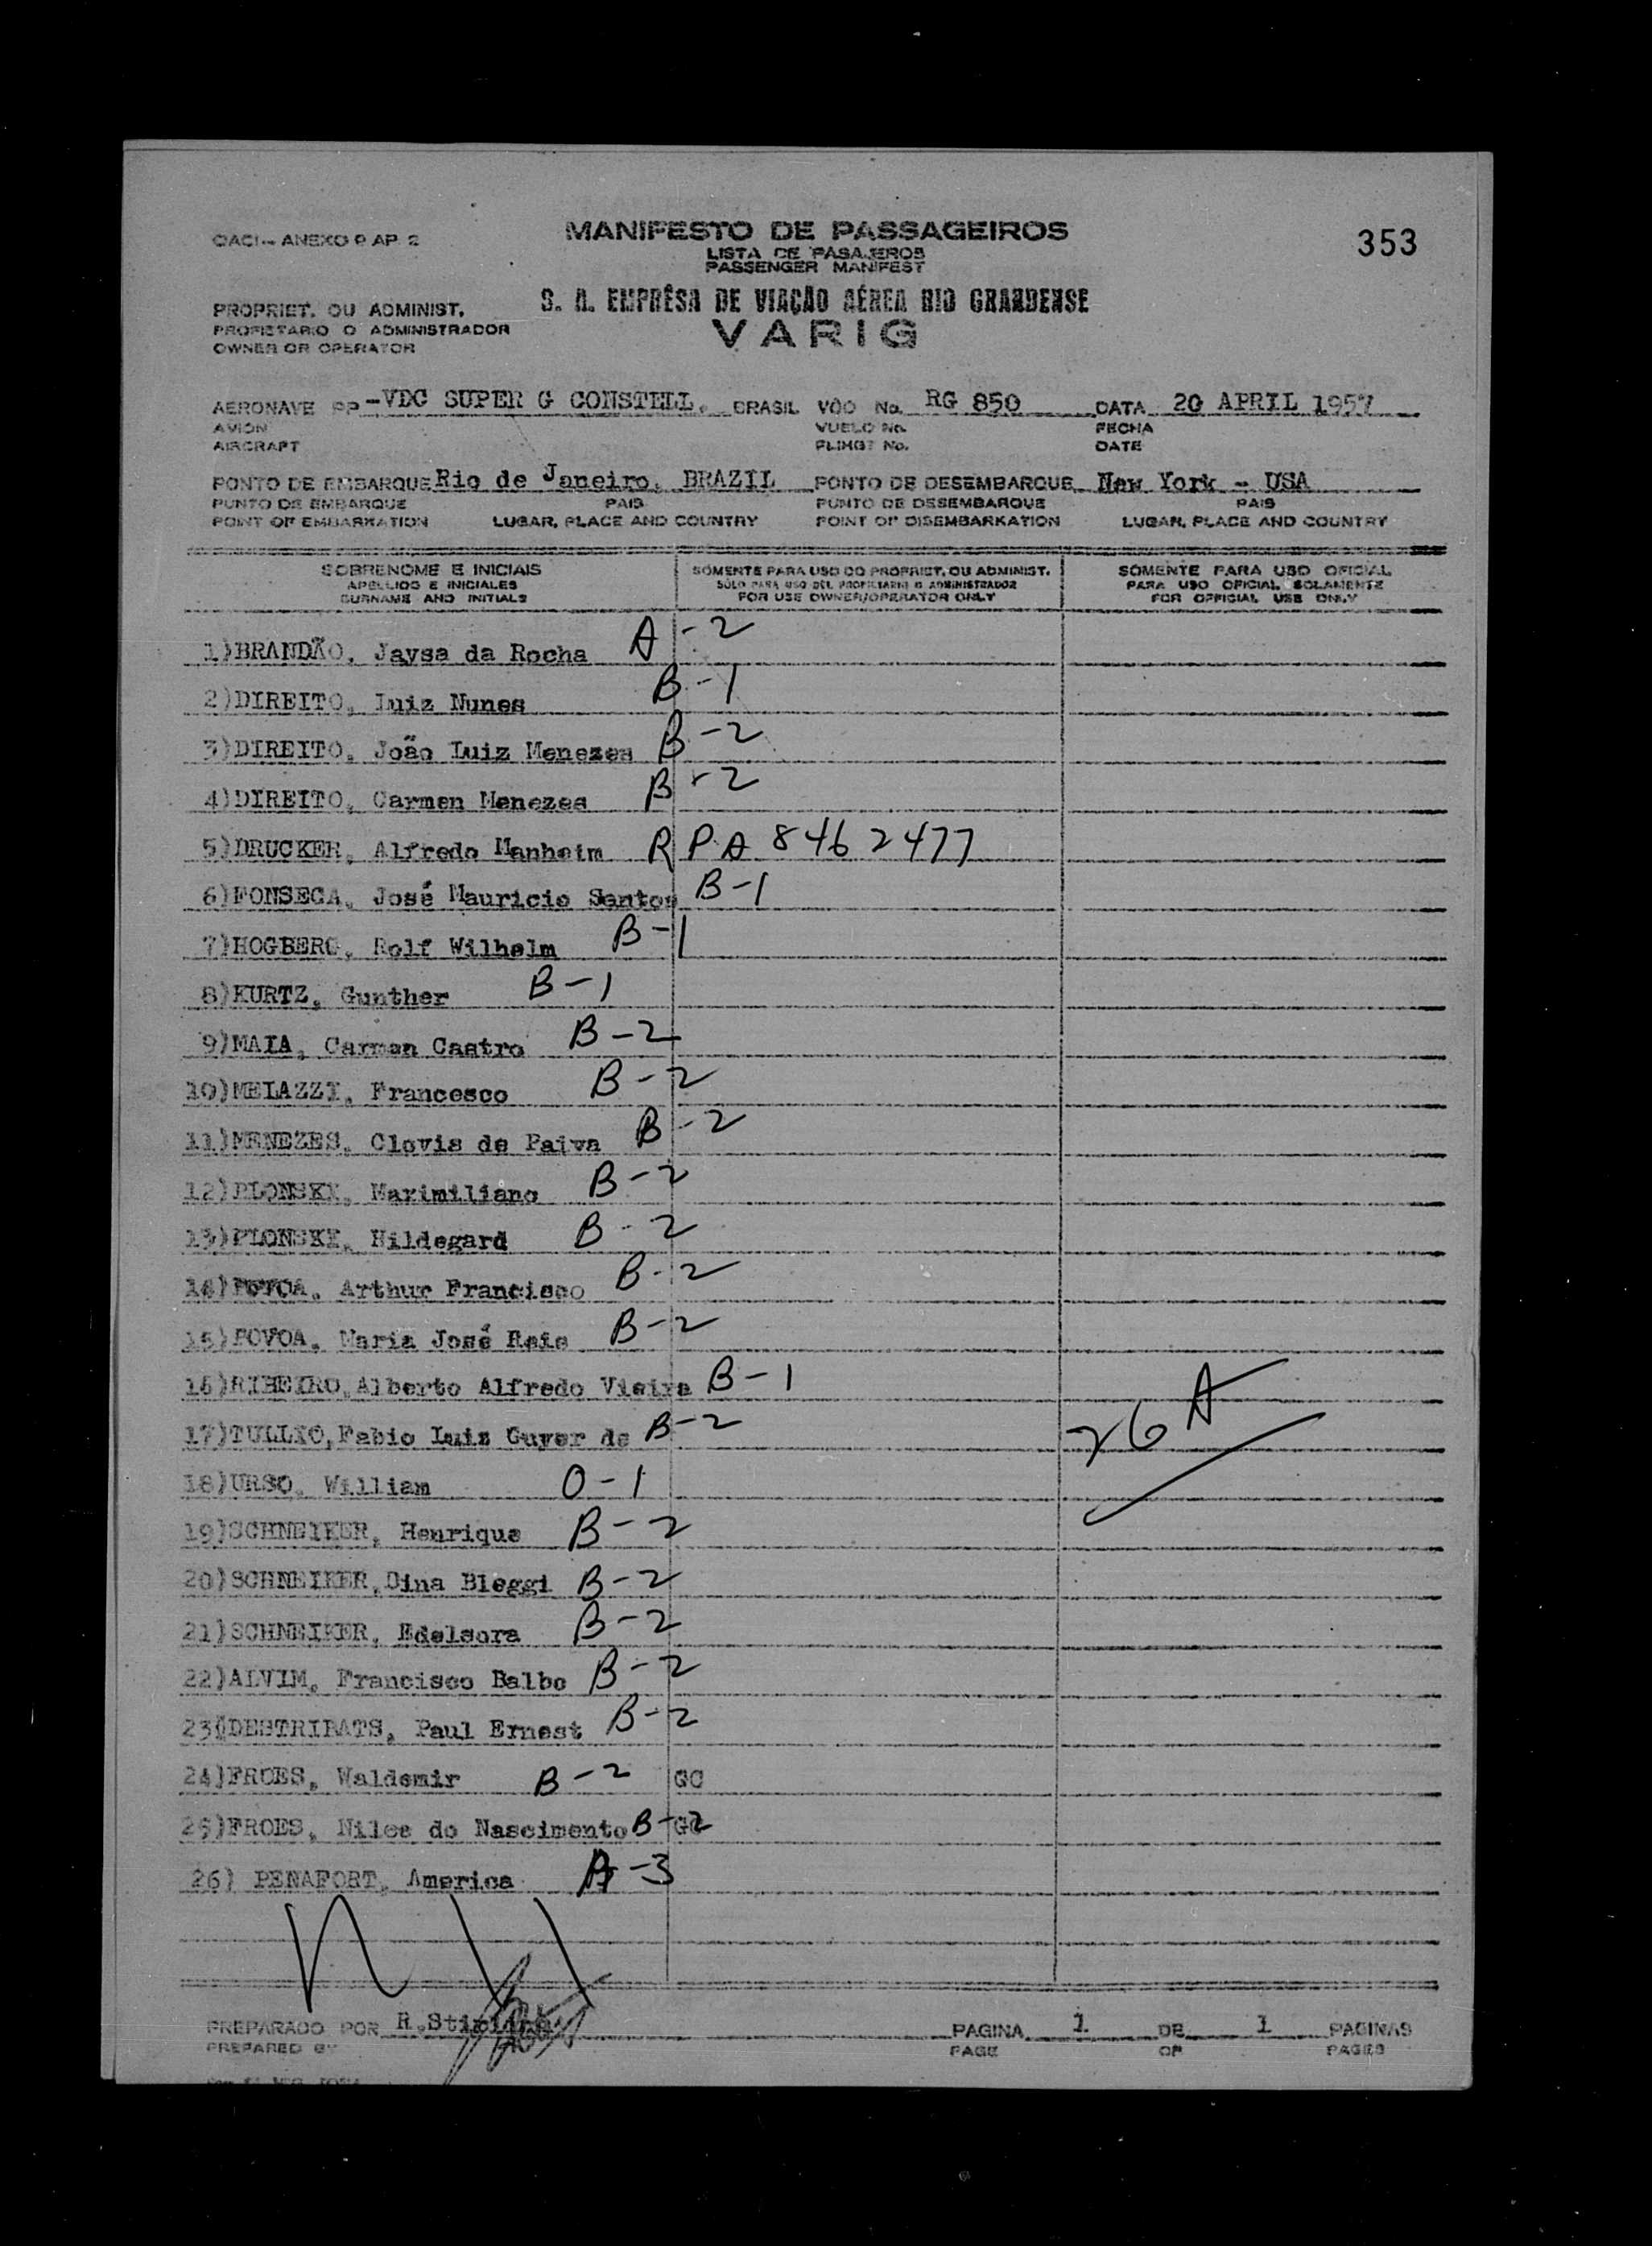 OACI - ANEXO 9 AP. 2
MANIFESTO DE PASSAGEIROS
353
LISTA DE PASAJEROS
PASSENGER MANIFEST
PROPRIET. OU ADMINIST.
S. A. EMPRÊSA DE VIAÇÃO AÉREA RIO GRANDENSE
PROPIETARIO O ADMINISTRADOR
VARIG
OWNER OR OPERATOR
AERONAVE PP -VDC SUPER G CONSTELL. BRASIL VÔO No. RG 850 DATA 20 APRIL 1957
AVION VUELO No. FECHA
AIRCRAFT FLIHGT No. DATE
PONTO DE EMBARQUE Rio de Janeiro, BRAZIL PONTO DE DESEMBARQUE New York - USA
PUNTO DE EMBARQUE PAIS PUNTO DE DESEMBARQUE PAIS
POINT OF EMBARKATION LUGAR, PLACE AND COUNTRY POINT OF DISEMBARKATION LUGAR, PLACE AND COUNTRY
SOBRENOME E INICIAIS SÓMENTE PARA USO DO PROPRIET. OU ADMINIST. SÓMENTE PARA USO OFICIAL
APELLIDO E INICIALES SÓLO PARA USO DEL PROPIETARIO O ADMINISTRADOR PARA USO OFICIAL SOLAMENTE
SURNAME AND INITIALS FOR USE OWNER/OPERATOR ONLY FOR OFFICIAL USE ONLY
1)BRANDÃO, Jaysa da Rocha A-2
2)DIREITO, Luiz Nunes B-1
3)DIREITO, João Luiz Menezes B-2
4)DIREITO, Carmen Menezes B-2
5)DRUCKER, Alfredo Manheim R P A 8462477
6)FONSECA, José Mauricio Santos B-1
7)HOGBERG, Rolf Wilhelm B-1
8)KURTZ, Gunther B-1
9)MAIA, Carmen Castro B-2
10)MELAZZI, Francesco B-2
11)MENEZES, Clovis de Paiva B-2
12)PLONSKI, Maximiliano B-2
13)PLONSKI, Hildegard B-2
14)POVOA, Arthur Francisco B-2
15)POVOA, Maria José Reis B-2
16)RIBEIRO, Alberto Alfredo Vieira B-1
17)TULLIO, Fabio Luiz Guyer de B-2
26 A
18)URSO, William O-1
19)SCHNEIKER, Henrique B-2
20)SCHNEIKER, Dina Bleggi B-2
21)SCHNEIKER, Edelsora B-2
22)ALVIM, Francisco Balbo B-2
23(DESTRIBATS, Paul Ernest B-2
24)FROES, Waldemir B-2 GC
25)FROES, Nilce do Nascimento B-2 GC
26) PENAFORT, America A-3
PREPARADO POR R.Stirling PAGINA 1 DE 1 PAGINAS
PREPARED BY PAGE OF PAGES